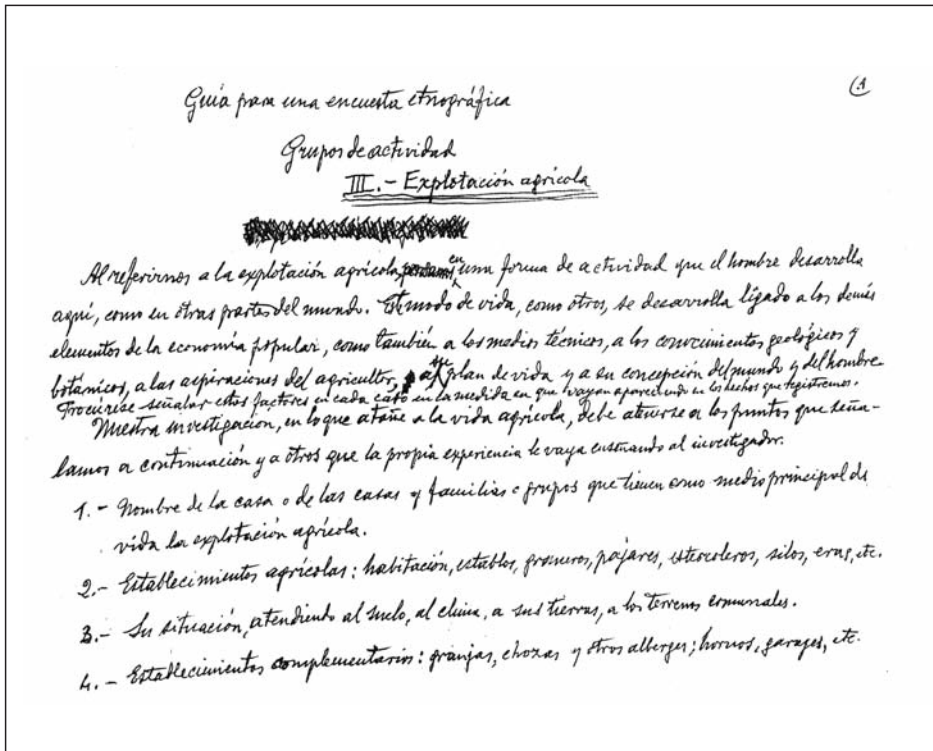 (1
Guía para una encuesta etnográfica
Grupos de actividad
III.- Explotación agrícola
Al referirnos a la explotación agrícola en una forma de actividad que el hombre desarrolla
aquí, como en otras partes del mundo. Este modo de vida, como otros, se desarrolla ligado a los demás
elementos de la economía popular, como también a los medios técnicos, a los conocimientos geológicos y
botánicos, a las aspiraciones del agricultor, a su plan de vida y a su concepción del mundo y del hombre.
Procúrese señalar estos factores en cada caso en la medida en que vayan apareciendo en los hechos que registremos.
Nuestra investigación, en lo que atañe a la vida agrícola, debe atenerse a los puntos que seña-
lamos a continuación y a otros que la propia experiencia le vaya enseñando al investigador.
1.- Nombre de la casa o de las casas y familias o grupos que tienen como medio principal de
vida la explotación agrícola.
2.- Establecimientos agrícolas: habitación, establos, graneros, pajares, estercoleros, silos, eras, etc.
3.- Su situación, atendiendo al suelo, al clima, a sus tierras, a los terrenos comunales.
4.- Establecimientos complementarios: granjas, chozas y otros alberges; hornos, garajes, etc.